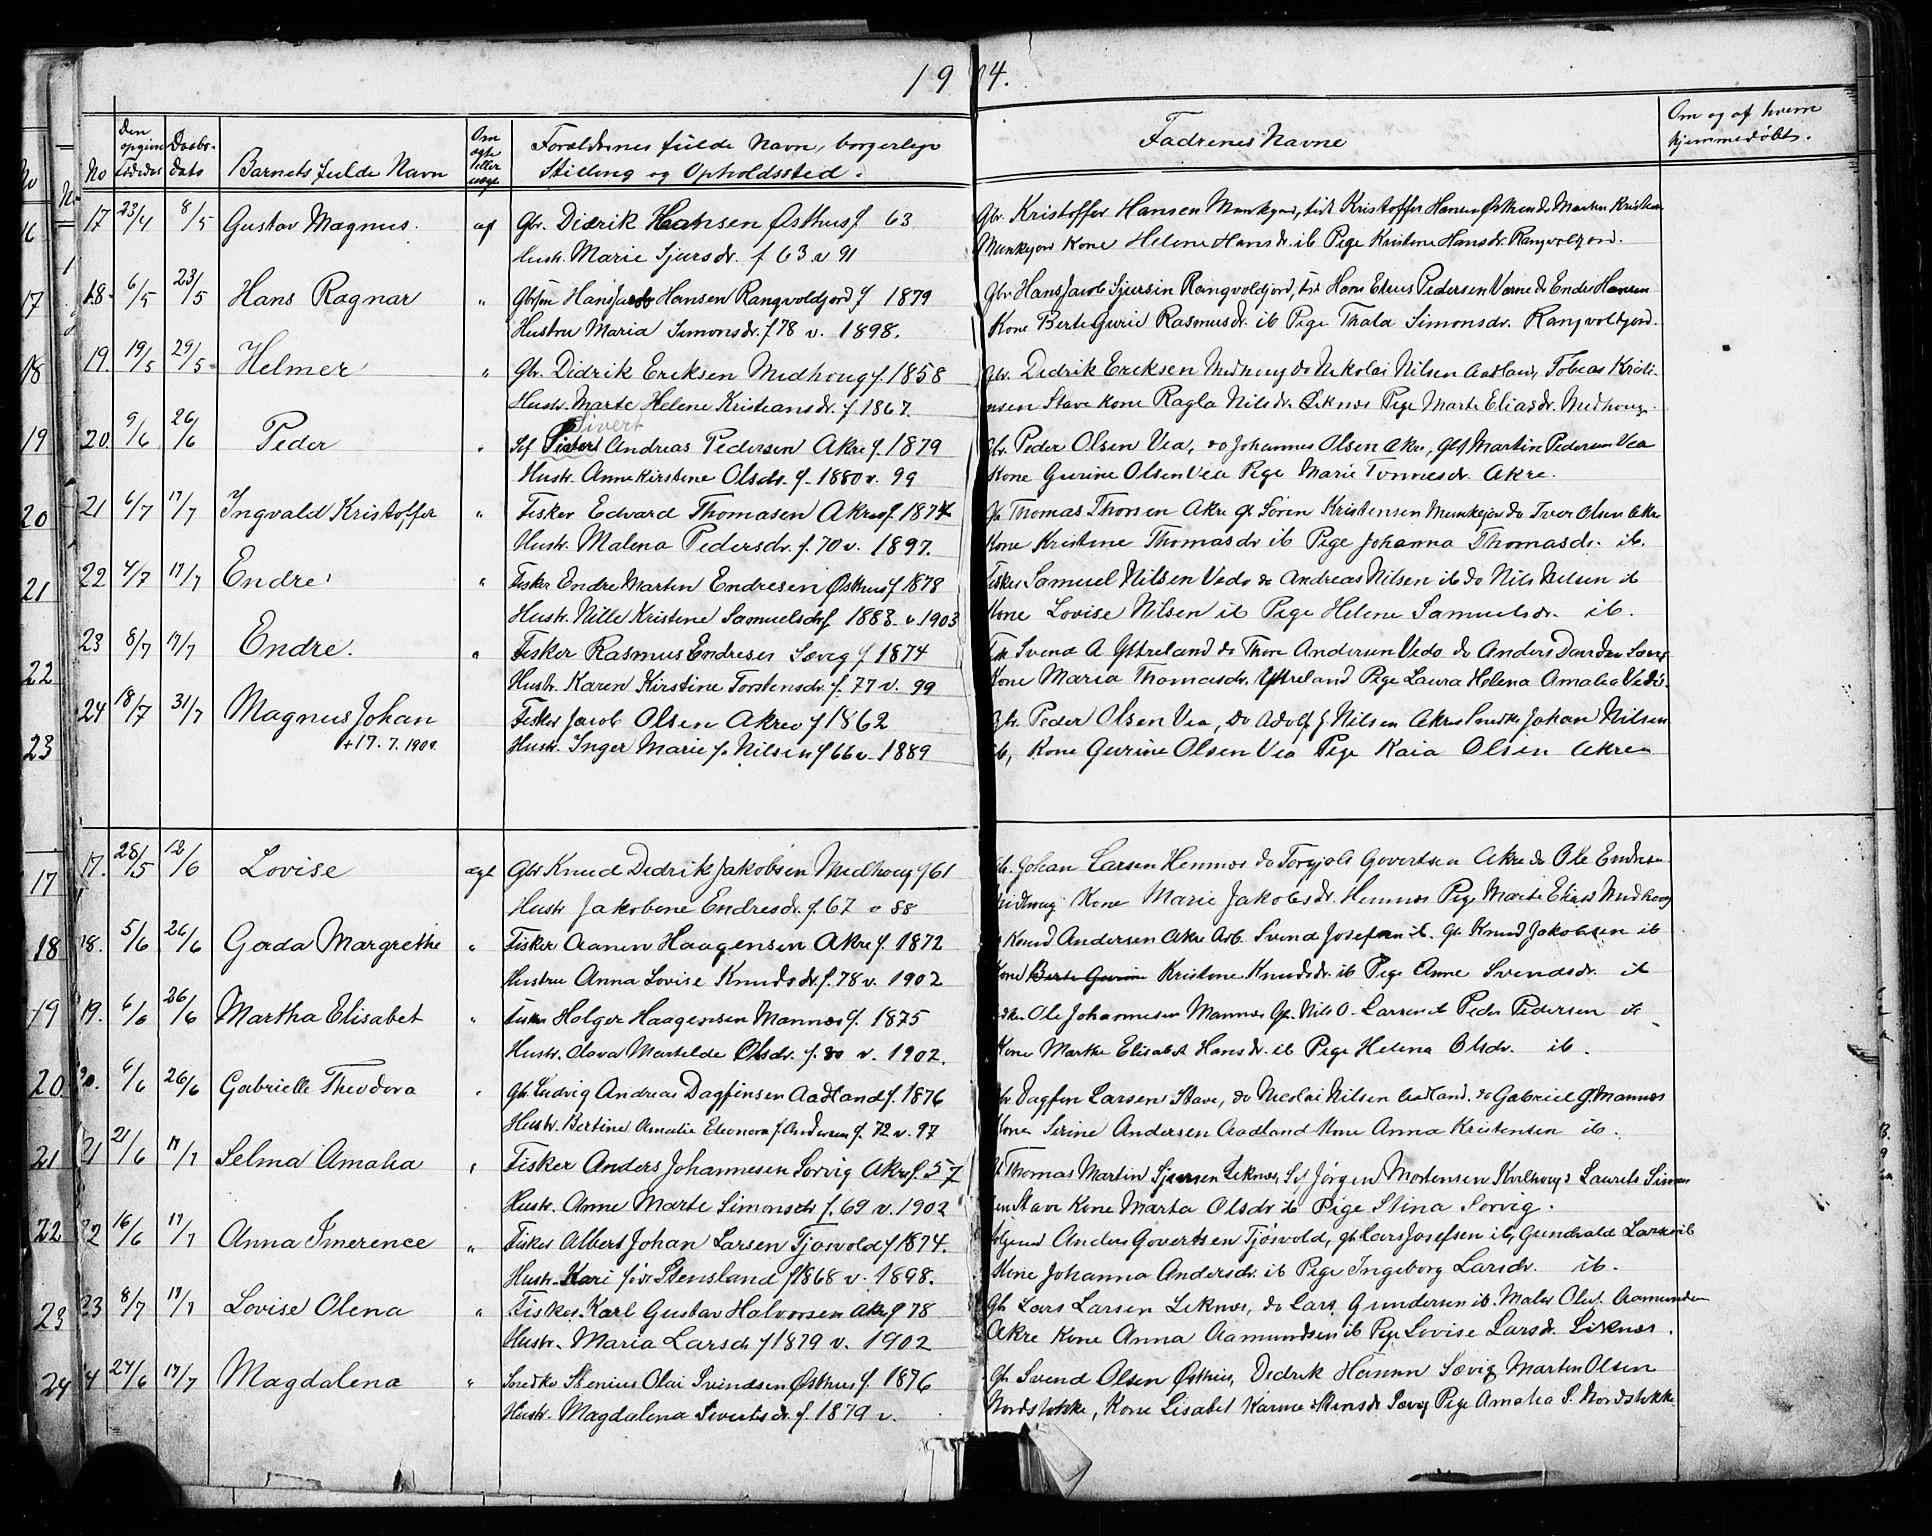 1904.
No
Den opgivne Fødselsd.
Daabsdato
Barnets fulde Navn
Om ægte eller uægte
Forældrenes fulde Navn, borgerlige
Stilling og Opholdssted.
Fadrenes Navne
Om og af hvem
hjemmedøbt.
17 23/4 8/5 Gustav Magnus. Gbr. Didrik Hansen Østhus f. 63 Gbr. Kristoffer Hansen Munkejord, Kristoffer Hansen Østhus do Marten Kristian
Hustr. Marie Sjursdr. f 63 v 91 Munkejord Kone Helene Hansdr. ib Pige Kristine Hansdr. Rangvoldjord.
18. 6/5 23/5 Hans Ragnar " Hans Jacob Hansen Rangvoldjord f 1879 Gbr Hans Jacob Sjursen Rangvoldjord, Pedersen do Endre Hansen
Hustru Maria Simonsdr. f 78 v. 1898. Kone Berte Gurie Rasmusdr. ib Pige Thala Simonsdr. Rangvoldjord.
19. 19/5 29/5 Helmer " Gbr. Didrik Eriksen Midhoug f. 1858 Gbr. Didrik Eriksen Midhoug do Nikolai Nilsen Aadland, Tobias Kristi-
Hustr. Marte Helene Kristiansdr. f 1867. ansen Stave Kone Ragla Nilsdr. Liknes Pige Marte Eliasdr. Midhoug.
Sivert
20. 9/6 26/6 Peder " Andreas Pedersen Akre f. 1879 Gbr. Peder Olsen Vea, do Johannes Olsen Akre, Martin Pedersen Vea
Hustr. Anne Kirstine Olsdr. f. 1880 v. 99 Kone Gurine Olsen Vea Pige Marie Tønnesdr. Akre.
21 6/7 17/7 Ingvald Kristoffer " Fisker Edvard Thomasen Akre f. 1874 Thomas Thorsen Akre Sören Kristensen Munkejor do Iver Olsen Akre
Hustr. Malena Pedersdr. f. 70 v. 1897. Kone Kristine Thomasdr ib Pige Johanna Thomasdr. ib.
22 4/7 17/7 Endre " Fisker Endre Martin Endresen Østhus f 1878 Fisker Samuel Nilsen Vedø do Andreas Nilsen ib do Nils Nilsen ib
Hustr. Nille Kristine Samuelsdr f. 1883 v. 1903 Kone Lovise Nilsen ib Pige Helene Samuelsdr. ib.
23 8/7 17/7 Endre. " Fisker Rasmus Endresen Sævig f 1874 Svend A Yttreland do Thore Andersen Vedø do Anders Sævig
Hustr. Karen Kirstine Torstensdr. f. 77 v. 99 Kone Maria Thomasdr. Yttreland Pige Laura Helena Amalia Vedø.
24 18/7 31/7 Magnus Johan Fisker Jacob Olsen Akre f 1862 Gbr. Peder Olsen Vea, do Adolf J. Nilsen Akre Johan Nilsen
+17. 7. 1909. Hustr. Inger Marie f. Nilsen f 66 v. 1889 ib, Kone Gurine Olsen Vea Pige Kaia Olsen Akre
17. 28/5 12/6 Lovise ægt Gbr Knud Didrik Jakobsen Midhoug f 61 Johan Larsen Hemnes do Torgjels Govertsen Akre do Ole Endresen
Hustr Jakobene Endresdr. f. 67 v 88 Midhoug Kone Marie Jakobsdr. Hemnes Pige Marte Eliasd Midhoug
18. 5/6 26/6 Gerda Margrethe " Fisker Aanen Haagensen Akre f. 1872 Knud Andersen Akre Arb. Svend Josefsen ib. Knud Jakobsen ib
Hustru Anna Lovise Knudsdr. f. 78 v. 1902 Kone Berte Gurine Kristone Knudsdr. ib Pige Anne Svendsdr. ib
19. 6/6 26/6 Martha Elisabet " Fisker Holger Haagensen Mannes f. 1875 Ole Johannesen Mannes Nils O. Larsen ib Peder Pedersen ib
Hustr. Olava Martilde Olsdr. f. 80 v. 1902. Kone Marthe Elisabet Hansdr. ib Pige Helena Olsdr. ib.
20. 6/6 26/6 Gabrielle Theodora Gbr. Ludvig Andreas Dagfinsen Aadland f. 1876 Gbr Dagfin Larsen Stave, do Nicolai Nilsen Aadland. do Gabriel G. Mannes
Hustr. Bertine Amalie Eleonora f. Andersen f. 72 v. 97 Kone Serine Andersen Aadland Kone Anna Kristensen ib.
21 21/6 17/7 Selma Amalia Fisker Anders Johannesen Sørvig Akre f. 57 Thomas Martin Sjursen Liknes, Jørgen Mortensen Laurits
Hustr. Anne Marte Simonsdr f. 69 v. 1902 Stave Kone Marta Olsdr ib Pige Stina Sørvig.
22 16/6 17/7 Anna Imerence " Fisker Albert Johan Larsen Tjøsvold f 1874. Anders Govertsen Tjøsvold, Lars Josefsen ib, Gundvald Larsen ib
Hustr. Kari Stensland f 1868 v. 1898. Kone Johanna Andersdr. ib Pige Ingeborg Larsdr. ib.
23 8/7 17/7 Lovise Olena " Fisker Karl Gustav Halvorsen Akre f 78 Lars Larsen Liknes, do Lars Gundersen ib. Maler Aamundsen
Hustr. Maria Larsdr f 1879 v. 1902 Akre Kone Anna Aamundsen ib Pige Lovise Larsdr. Liknes.
24 27/6 17/7 Magdalena " Stenius Olai Svindsen Østhus f. 1876 Svend Olsen Østhus, Didrik Hansen Sævig Martin Olsen
Hustr. Magdalena Sivertsdr f. 1879 v. Nordstokke, Kone Lisabet Karine Sævig Pige Amalia S. Nordstokke